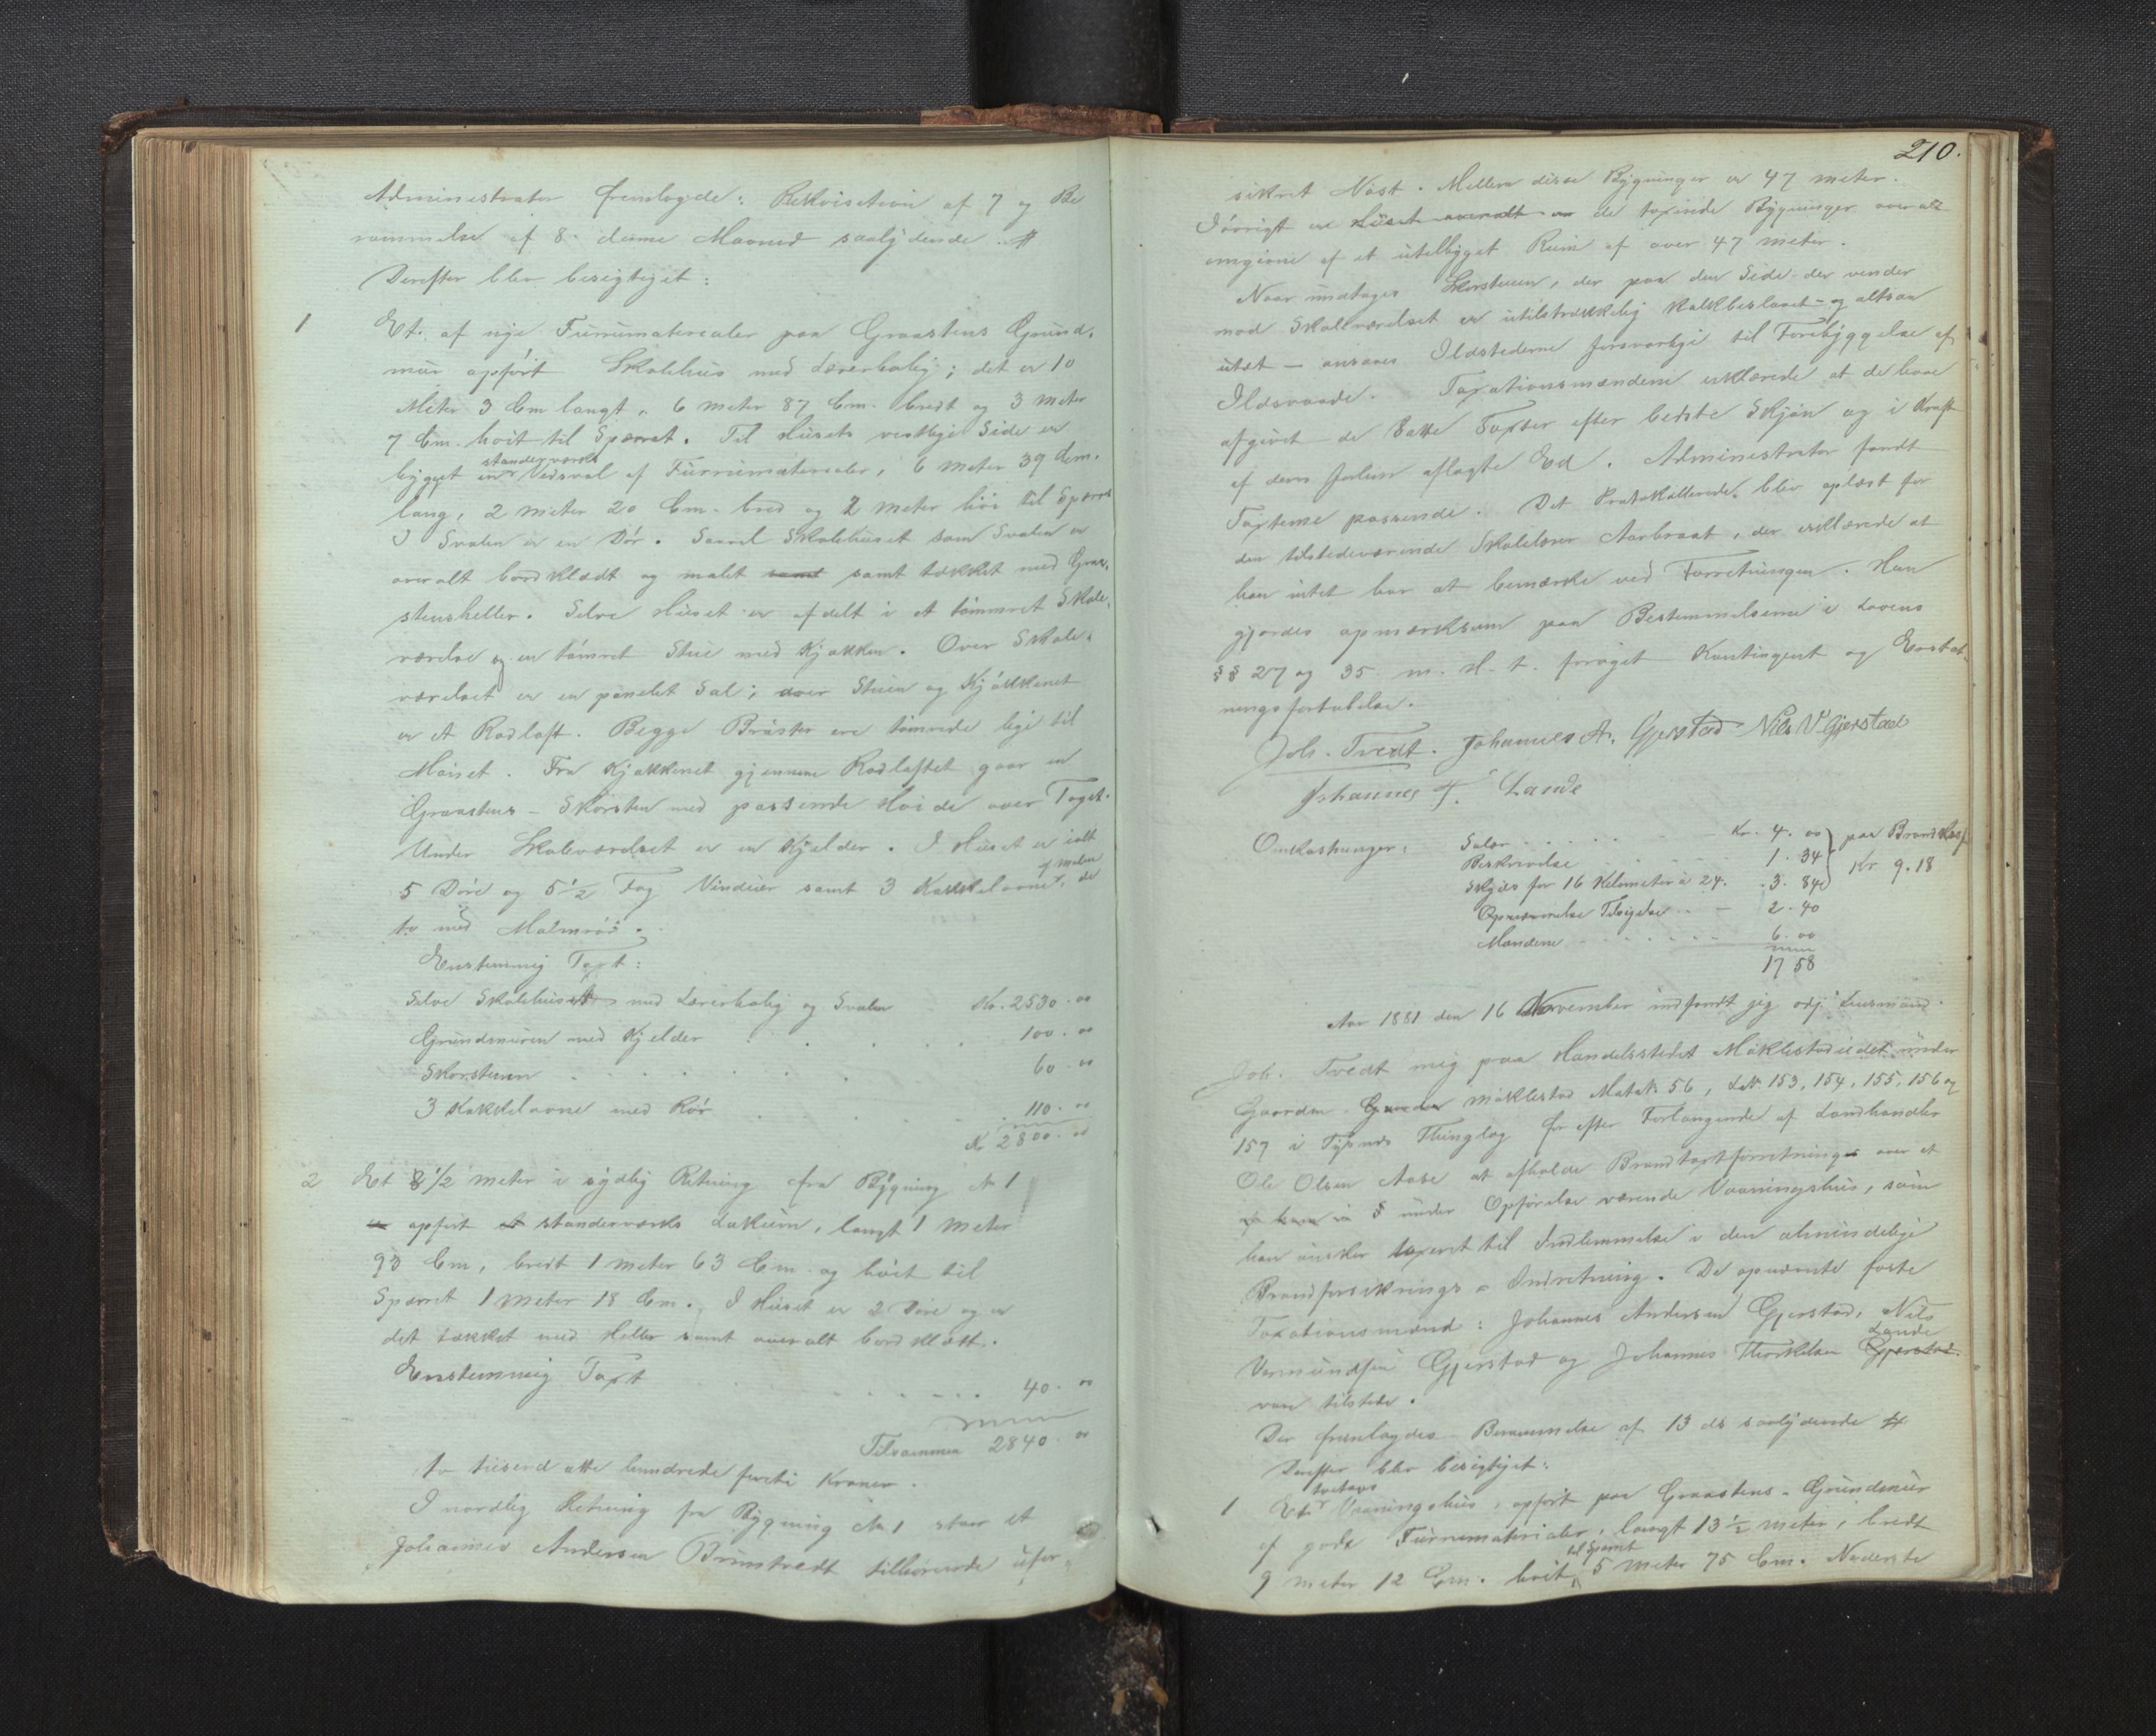 Administrator fremlagde: Rekvisition af 7 og Be
rammelse af 8 denne Maaned saalydende #
Derefter blev besigtiget:
1 Et af nye Furumaterialer paa Graastens Grund-
mur opført Skolehus med Lærerbolig; det er 10
Meter 3 Cm langt, 6 Meter 87 Cm. bredt og 3 Meter
7 Cm. høit til Sperret. Til Husets vestlige Side er
bygget en standerværks Vedsval af Furumaterialer, 6 Meter 39 Cm.
lang, 2 Meter 20 Cm. bred og 2 Meter høi til Sperret
I Svalen er en Dør. Saavel Skolehuset som Svalen er
overalt bordklædt og malet samt samt tækket med Graa-
stensheller. Selve Huset er afdelt i et tømmret Skole-
værelse og en tømret Stue med Kjøkken. Over Skole-
værelset er en panelet Sal; over Stuen og Kjøkkenet
er et Rodloft. Begge Brøster ere tømrede lige til
Mønet. Fra Kjøkkenet gjennem Rodloftet gaar en
Graastens-Skorsten med passende Høide over Taget.
Under Skoleværelset er en Kjelder. I Huset er ialt
5 Døre og 5 1/2 Fag Vinduer samt 3 Kakkelovne af Malm, de
to med Malmrør.
Enstemmig Taxt:
Selve Skolehuset med Lærerbolig og Svalen Kr. 2530.00
Grundmuren med Kjelder 100.00
Skorstenen 60.00
3 Kakkelovne med Rør 110.00
Kr 2800.00
2 Et 8 1/2 Meter i sydlig Retning fra Bygning No 1
er opført et standerværks Lokum, langt 1 Meter
93 Cm, bredt 1 Meter 63 Cm. og høit til
Sperret 1 Meter 18 Cm. I Huset er 2 Døre og er
det tækket med Heller samt overalt bordklædt.
Enstemmig Taxt 40.00
Tilsammen 2840.00
to tusend otte hundrede forti Kroner.
I nordlig Retning fra Bygning No 1 staar et
Johannes Andersen Bruntvedt tilhørende ufor-
210.
sikret Nøst. Mellem disse Bygninger er 47 Meter.
Iøvrigt er Huset overalt er de taxerede Bygninger overalt
omgivne af et ubebygget Rum af over 47 Meter.
Naar undtages Skorstenen, der paa den Side der vender
mod Skoleværelset er utilstrækkelig kalkbeslaaet - og altsaa
utæt - ansaaes Ildstederne forsvarlige til Forebyggelse af
Ildsvaade. Taxationsmændene erklærede at de have
afgivet de satte Taxter efter bedste Skjøn og i Kraft
af deres forhen aflagte Ed. Administrator fandt
Taxterne passende. Det Protokollerede blev oplæst for
den tilstedeværende Skolelærer Aarbraat, der erklærede at
han intet har at bemærke ved Forretningen. Han
gjordes opmærksom paa Bestemmelserne i Lovens
§§ 27 og 35 m. H. t. forøget Kontingent og Erstat-
ningsfortabelse.
Joh. Tvedt. Johannes A. Gjerstad Nils V Gjerstad
Johannes T. Lande
Omkostninger: Salær Kr. 4.00 } paa Brandkas
Beskrivelse 1.34
Skyds for 16 Kilometer à 24. 3.84 } Kr 9.18
Opnævnelse Tilsigelse 2.40
Mændene 6.00
17 58
Aar 1881 den 16 November indfandt jeg Lensmand
Joh. Tvedt mig paa Handelsstedet Møklestadiedet under
Gaarden Gaarden Møklestad Matr. 56, Lnr. 153, 154, 155, 156 og
157 i Tysnes Thinglag for efter Forlangende af Landhandler
Ole Olsen Aase at afholde Brandtaxtforretning over et
under Opførelse værende Vaaningshus, som
han ønsker taxeret til Indlemmelse i den almindelige
Brandforsikrings-Indretning. De opnævnte faste
Taxationsmænd: Johannes Andersen Gjerstad, Nils
Vermundsen Gjerstad og Johannes Thorkelsen Gjerstad Lande
vare tilstede.
Der fremlagdes Berammelse af 13 ds saalydende #
Derefter blev besigtiget:
1 Et toetages Vaaningshus, opført paa Graastens-Grundmur
af gode Furumaterialer, langt 13 1/2 Meter, bredt
9 Meter 12 Cm. høit til Sperret 5 Meter 75 Cm. Nederste